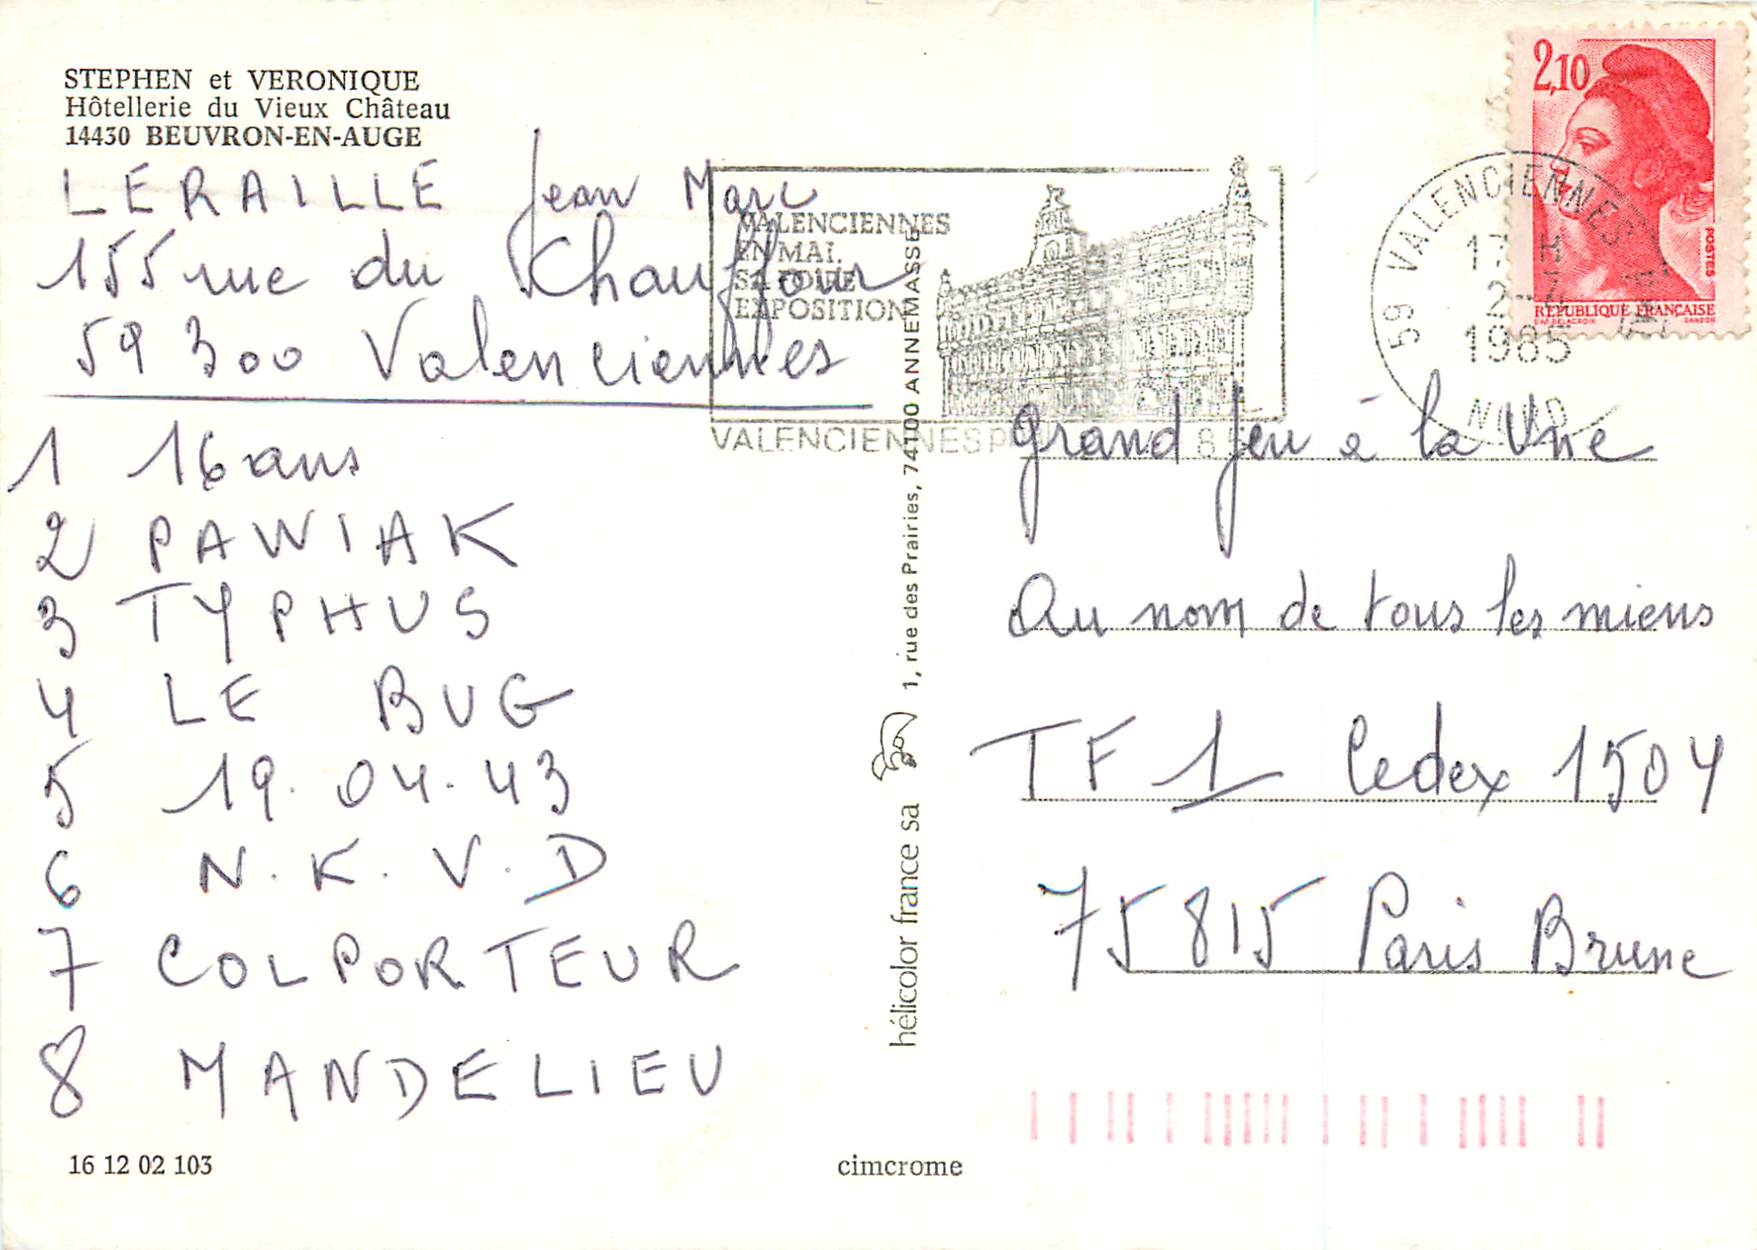 STEPHEN et VERONIQUE
Hôtellerie du Vieux Château
14430 BEUVRON-EN-AUGE
LERAILLE Jean Marc
155 rue du Chauffour
59 300 Valenciennes
1 16 ans
2 PAWIAK
3 TYPHUS
4 LE BUG
5 19.04.43
6 N.K.V.D
7 COLPORTEUR
8 MANDELIEU
16 12 02 103
VALENCIENNES
EN MAI.
SA FOIRE
EXPOSITION
VALENCIENNES
hélicolor france sa 1, rue des Prairies, 74100 ANNEMASSE
cimcrome
2,10
POSTES
RÉPUBLIQUE FRANÇAISE
D'AP. DELACROIX GANDON
59 VALENCIENNES
17 H
1985
NORD
Grand Jeu à la Une
Au nom de tous les miens
TF 1 Cedex 1504
75815 Paris Brune